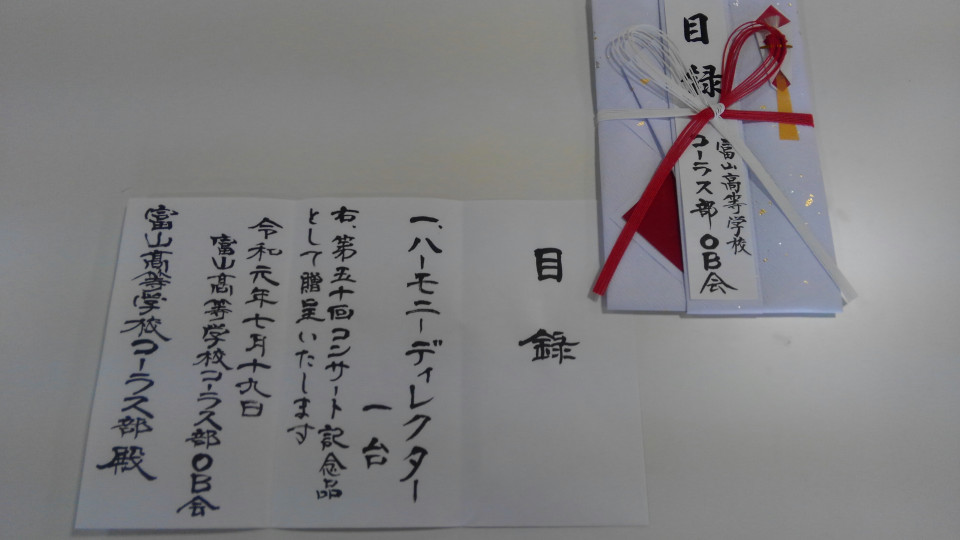 目録
富山高等学校
コーラス部OB会
目録
一、ハーモニーディレクター
一台
右、第五十回コンサート記念品
として贈呈いたします
令和元年七月十九日
富山高等学校コーラス部OB会
富山高等学校コーラス部殿